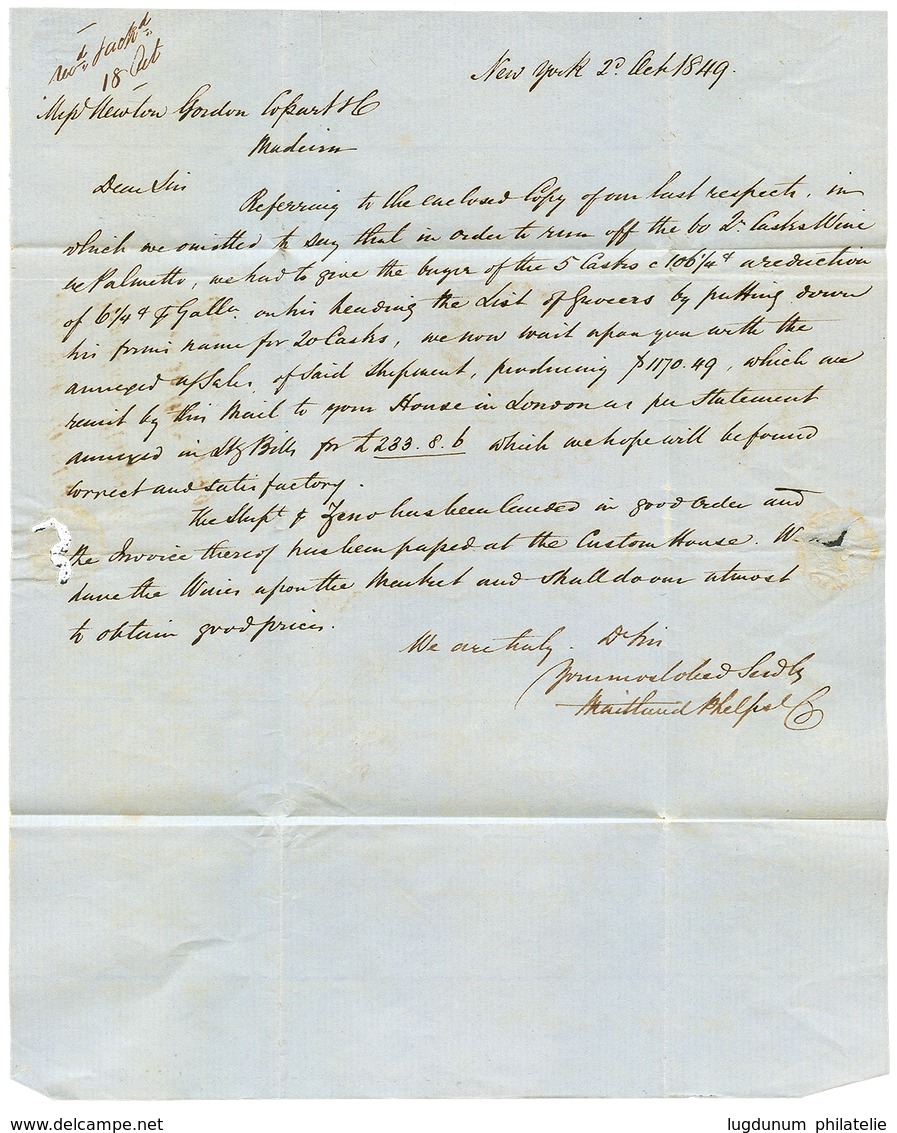 recd Jackn
18 Oct
New York 2d Oct 1849.
Messrs Newton Gordon Cossart & Co
Madeira
Dear Sirs
Referring to the enclosed Copy of our last respects, in
which we omitted to say that in order to run off the 60 Qr Casks Wine
pr Palmetto, we had to give the buyer of the 5 Casks @ 106¼ ¢ a reduction
of 6¼ ¢ Gallon on his heading the List of Grocers by putting down
his firms name for 20 Casks, we now wait upon you with the
annexed a/Sales of Said Shipment, producing $1170.49, which we
remit by this Mail to your House in London as per Statement
annexed in Stg Bills for £233.8.6 which we hope will be found
correct and satisfactory.
The Shipt Zeno has been landed in good order and
the Invoice thereof has been passed at the Custom House. W
have the Wines upon the Market and shall do our utmost
to obtain good prices.
We are truly Dr Sirs
Your most obed Servts
Maitland Phelps & Co
www.delcampe.net
lugdunum philatelie